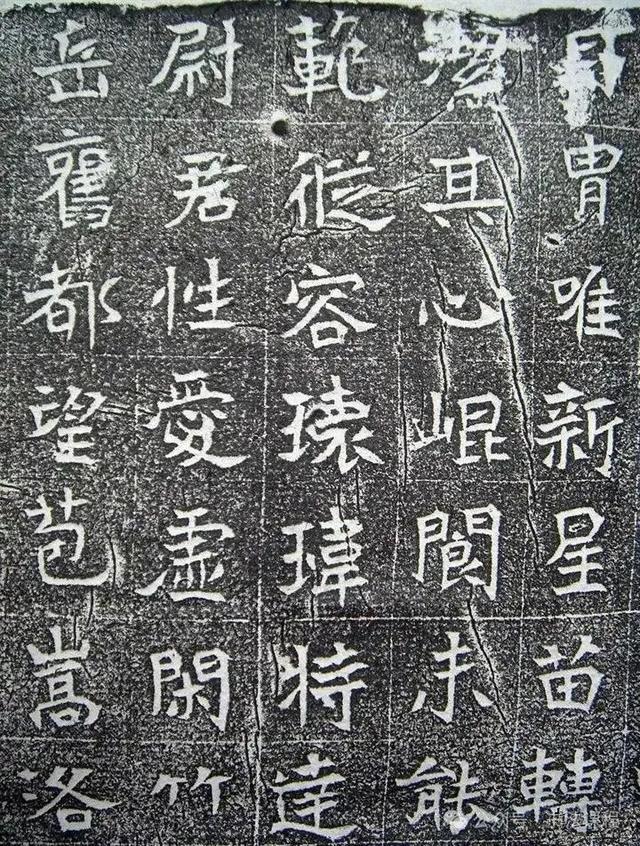 胄唯新星苗轉
其心崐閬未能
範從容瓌瑋特達
尉君性愛虛閑竹
岳舊都望苞嵩洛
公众号